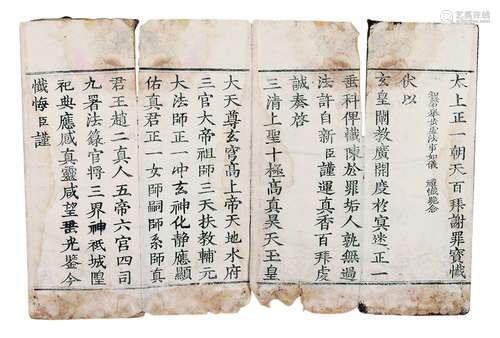 太上正一朝天百拜謝罪寶懺
伏以
玄皇闡教廣開度於冥迷正一
垂科俾懺陳於罪垢人孰無過
法許自新臣謹運真香百拜虔
誠奏啓
三清上聖十極高真昊天玉皇
大天尊玄穹高上帝天地水府
三官大帝祖師三天扶教輔元
大法師正一冲玄神化静應顯
佑真君正一女師嗣師系師真
君王趙二真人五帝六官四司
九署法籙官將三界神祇城隍
祀典應感真靈咸望垂光鑒今
懺悔臣謹